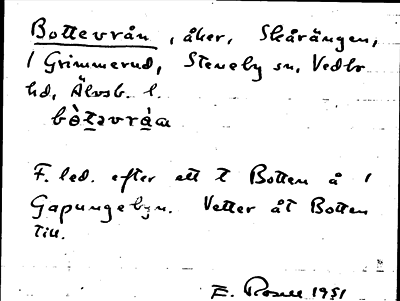 Bottevrån, åker, Skårängen,
1 Grimmerud, Steneby sn, Vedbo
hd, Älvsb. l.
bòt̲əvrà̲a
F. led. efter ett t Botten å 1
Gapungebyn. Vetter åt Botten
till.
E. Rosell 1951